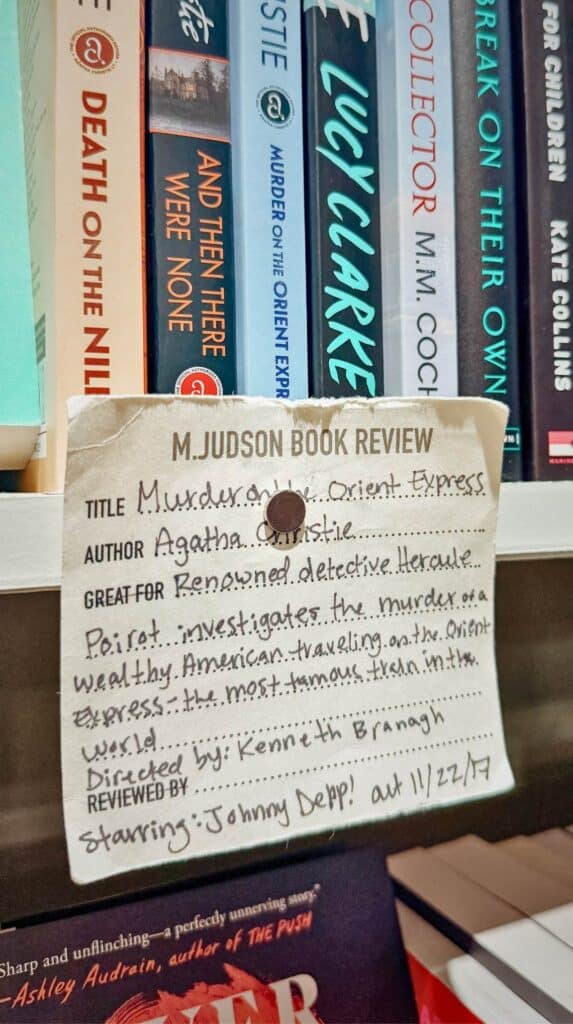 DEATH ON THE NILE
AND THEN THERE
WERE NONE
STIE
MURDER ON THE ORIENT EXPR
LUCY CLARKE
COLLECTOR
M.M. COCH
BREAK ON THEIR OWN
FOR CHILDREN
KATE COLLINS
M.JUDSON BOOK REVIEW
TITLE Murder on the Orient Express
AUTHOR Agatha Christie
GREAT FOR Renowned detective Hercule
Poirot investigates the murder of a
wealthy American traveling on the Orient
Express - the most famous train in the
world
Directed by: Kenneth Branagh
REVIEWED BY
Starring: Johnny Depp! out 11/22/17
Sharp and unflinching—a perfectly unnerving story."
—Ashley Audrain, author of THE PUSH
KER